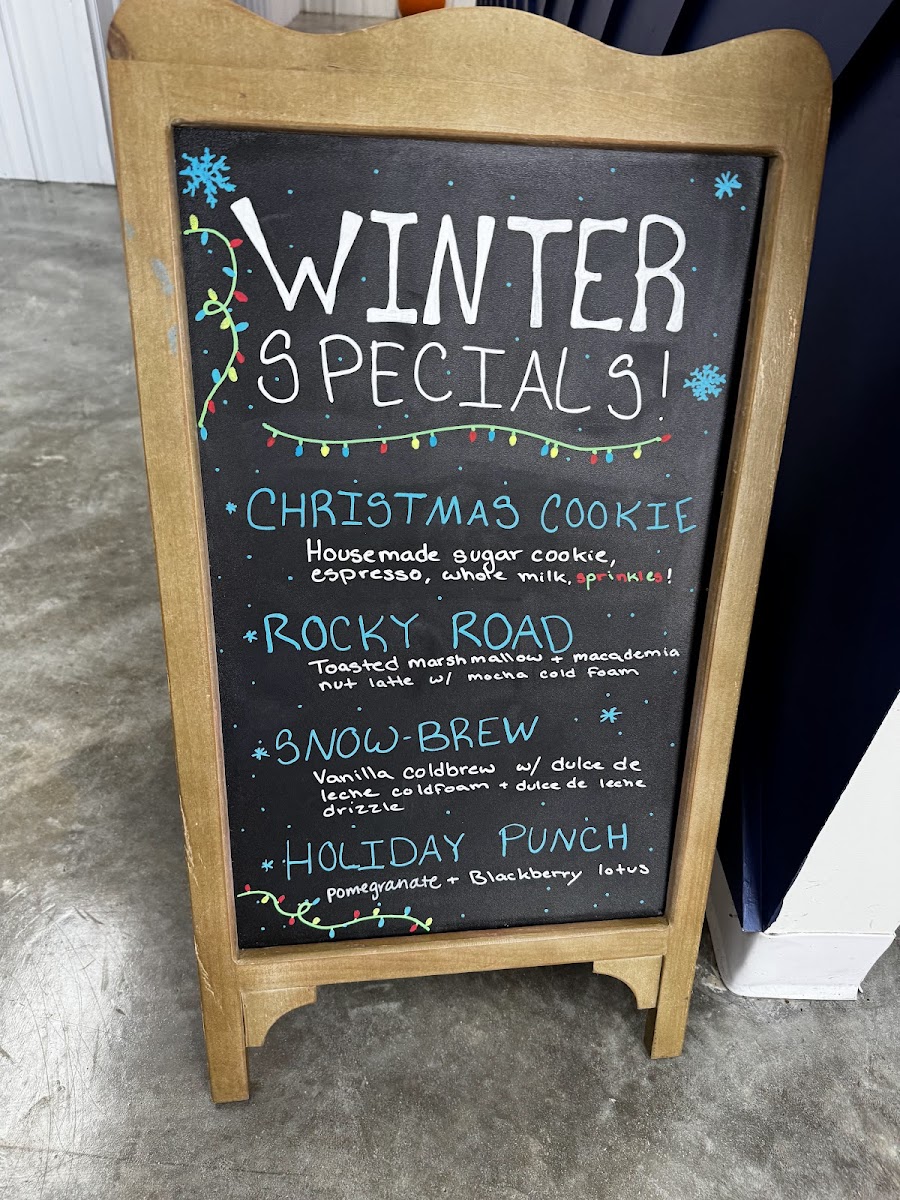 WINTER
SPECIALS!
* CHRISTMAS COOKIE
Housemade sugar cookie,
espresso, whole milk, sprinkles!
* ROCKY ROAD
Toasted marshmallow + macademia
nut latte w/ mocha cold foam
* SNOW-BREW
Vanilla coldbrew w/ dulce de
leche coldfoam + dulce de leche
drizzle
* HOLIDAY PUNCH
pomegranate + Blackberry lotus